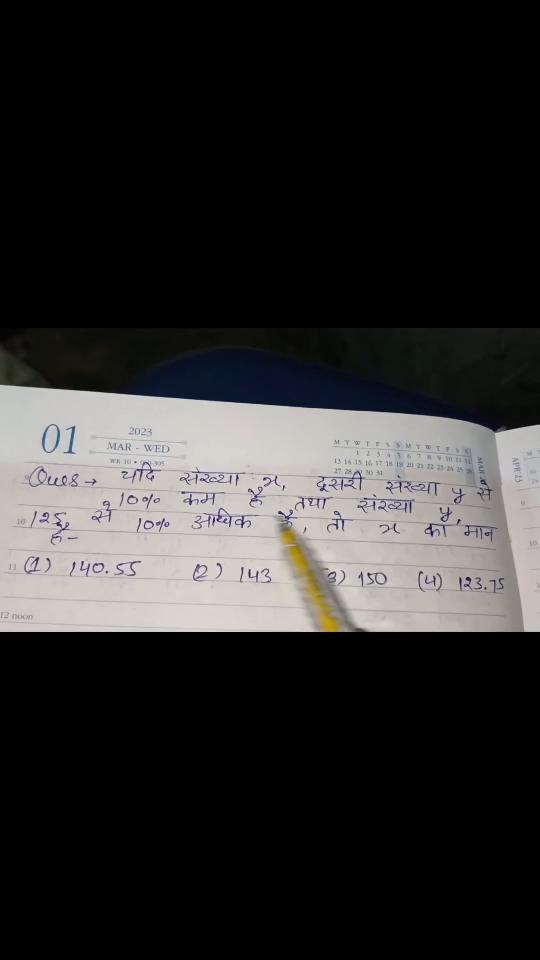 01
2023
MAR - WED
WK 10
305
M T W T F S S M T W T F S S
1 2 3 4 5 6 7 8 9 10 11 12
13 14 15 16 17 18 19 20 21 22 23 24 25 26
27 28 29 30 31
MAR
APR 23
Ques → यदि संख्या x, दूसरी संख्या y से
10% कम है तथा संख्या y,
10
125 से 10% अधिक है, तो x का मान
है-
11
(1) 140.55 (2) 143 (3) 150 (4) 123.75
12 noon
9
10
11